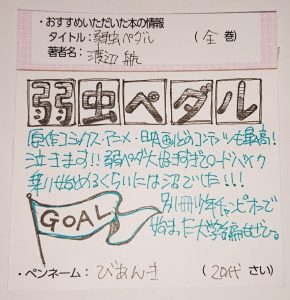 ・おすすめいただいた本の情報
タイトル：弱虫ペダル （全 巻）
著者名：渡辺 航
弱虫ペダル
原作コミックス・アニメ・映画どのコンテンツも最高！
泣きます！！弱ペダ大好きすぎてロードバイク
乗り始めるくらいには沼でした！！！
GOAL
別冊少年チャンピオンで
始まった大学編もぜひ。
・ペンネーム：びあんき （20代 さい）